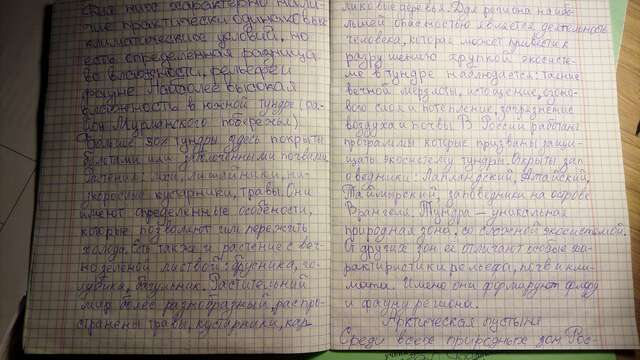 Для них характерно нали-
чие практически одинаковых
климатических условий, но
есть определенная разница
во влажности, рельефе и
фауне. Наиболее высокая
влажность в южной тундре (ра-
йон Мурманского побережья).
Больше 50% тундры здесь покрыты
болотами или заболоченными почвами
Растения: мхи, лишайники, ни-
корослые кустарники, травы. Они
имеют определенные особености,
которые позволяют им пережить
холода. Есть также и растение с веч-
нозеленой листвой: брусника, го-
лубика, багульник. Растительный
мир более разнообразный, распро-
странены травы, кустарники, кар
ликовые деревья. Для региона наибо-
льшей опасностью является деятельность
человека, которая может привести к
разрушению хрупкой экосисте-
мы в тундре наблюдается: таяние
вечной мерзлоты, истощение, озоно-
вого слоя и потепление, загрязнение
воздуха и почвы. В России работают
программы которые призваны защи-
щать экосистему тундры. Открыты зап
оведники: Лапландский, Алтайский,
Таймырский, заповедники на острове
Врангеля. Тундра – уникальная
природная зона. со сложной экосистемой.
От других зон её отличают особые ха-
рактиристики рельефа, почв и кли-
мата. Имено они формируют флору
и фауну региона.
Арктическая пустыня
Среди всех природных зон Рос-